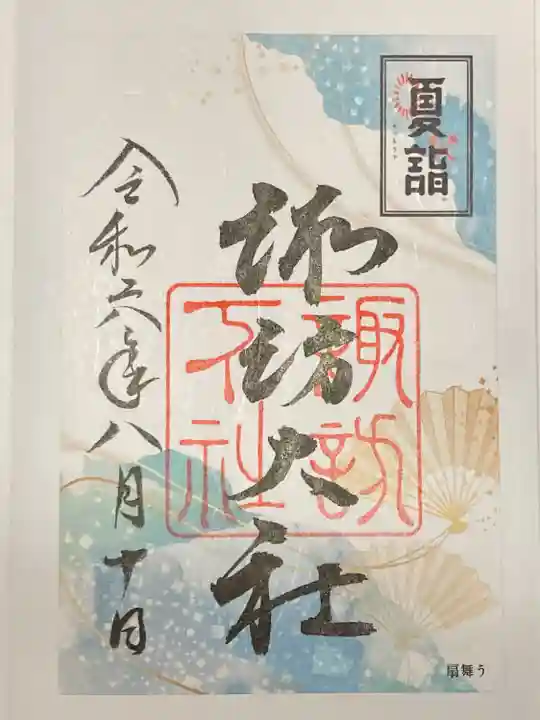 夏詣
諏訪大社
諏訪
大社
令和六年八月十日
扇舞う